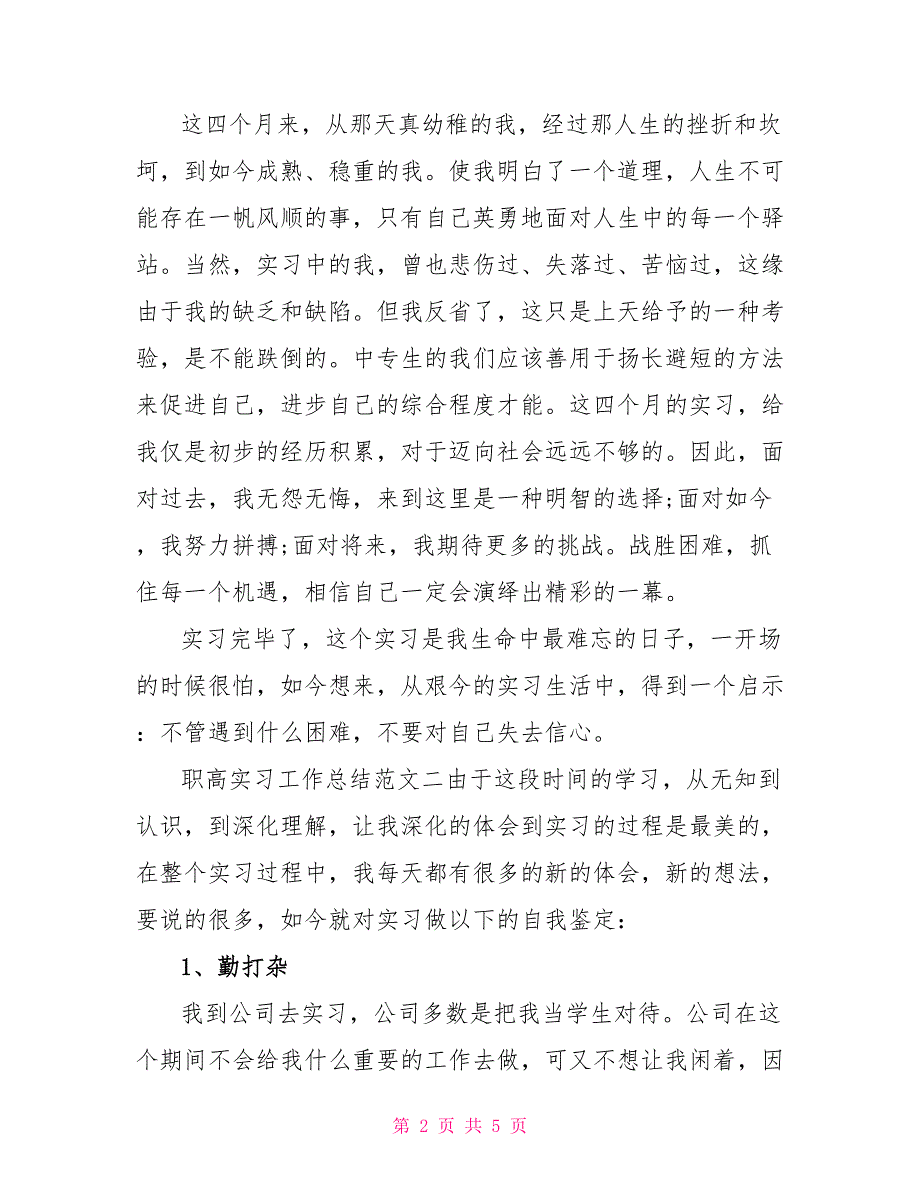 这四个月来，从那天真幼稚的我，经过那人生的挫折和坎
坷，到如今成熟、稳重的我。使我明白了一个道理，人生不可
能存在一帆风顺的事，只有自己英勇地面对人生中的每一个驿
站。当然，实习中的我，曾也悲伤过、失落过、苦恼过，这缘
由于我的缺乏和缺陷。但我反省了，这只是上天给予的一种考
验，是不能跌倒的。中专生的我们应该善用于扬长避短的方法
来促进自己，进步自己的综合程度才能。这四个月的实习，给
我仅是初步的经历积累，对于迈向社会远远不够的。因此，面
对过去，我无怨无悔，来到这里是一种明智的选择;面对如今
，我努力拼搏;面对将来，我期待更多的挑战。战胜困难，抓
住每一个机遇，相信自己一定会演绎出精彩的一幕。
实习完毕了，这个实习是我生命中最难忘的日子，一开场
的时候很怕，如今想来，从艰今的实习生活中，得到一个启示
：不管遇到什么困难，不要对自己失去信心。
职高实习工作总结范文二由于这段时间的学习，从无知到
认识，到深化理解，让我深化的体会到实习的过程是最美的，
在整个实习过程中，我每天都有很多的新的体会，新的想法，
要说的很多，如今就对实习做以下的自我鉴定：
1、勤打杂
我到公司去实习，公司多数是把我当学生对待。公司在这
个期间不会给我什么重要的工作去做，可又不想让我闲着，因
第 2 页 共 5 页